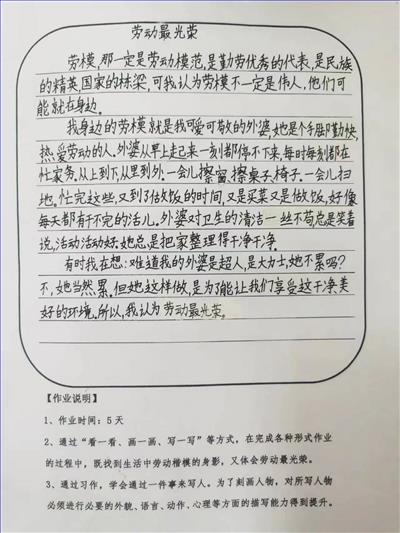 劳动最光荣
劳模,那一定是劳动模范,是勤劳优秀的代表,是民族
的精英,国家的栋梁,可我认为劳模不一定是伟人,他们可
能就在身边。
我身边的劳模就是我可爱可敬的外婆,她是个手脚勤快,
热爱劳动的人。外婆从早上起来一刻都停不下来,每时每刻都在
忙家务,从上到下,从里到外,一会儿擦窗、擦桌子、椅子,一会儿扫
地。忙完这些,又到了做饭的时间,又是买菜又是做饭,好像
每天都有干不完的活儿。外婆对卫生的清洁一丝不苟,总是笑着
说,活动活动好,她总是把家整理得干干净净。
有时我在想:难道我的外婆是超人,是大力士,她不累吗?
不,她当然累。但她这样做,是为了能让我们享受这干净、美
好的环境。所以,我认为劳动最光荣。
【作业说明】
1、作业时间:5天
2、通过“看一看、画一画、写一写”等方式,在完成各种形式作业
的过程中,既找到生活中劳动楷模的身影,又体会劳动最光荣。
3、通过习作,学会通过一件事来写人。为了刻画人物,对所写人物
必须进行必要的外貌、语言、动作、心理等方面的描写能力得到提升。